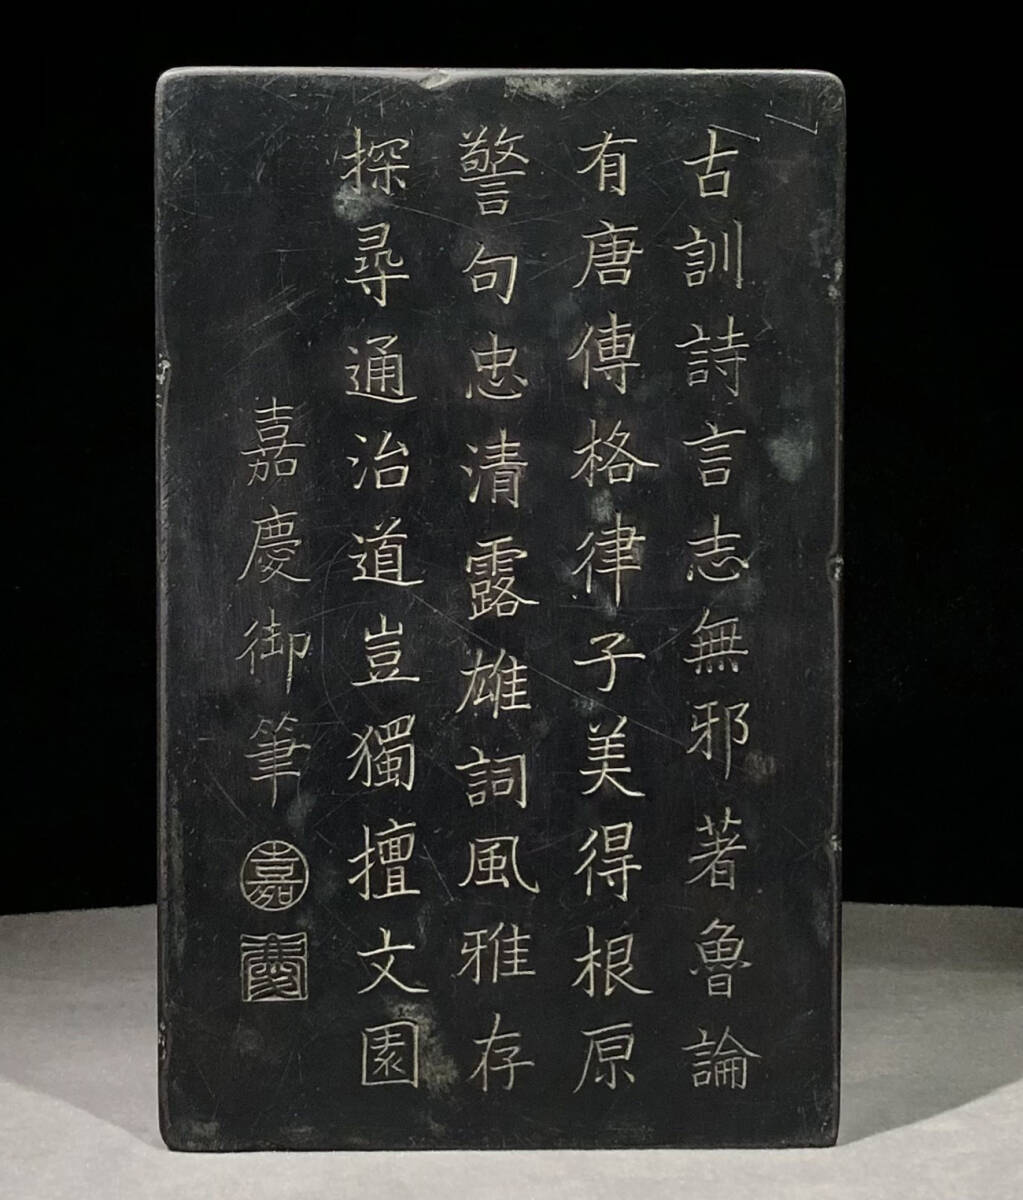 古訓詩言志無邪著魯論
有唐傳格律子美得根原
警句忠清露雄詞風雅存
探尋通治道豈獨擅文園
嘉慶御筆
嘉
慶